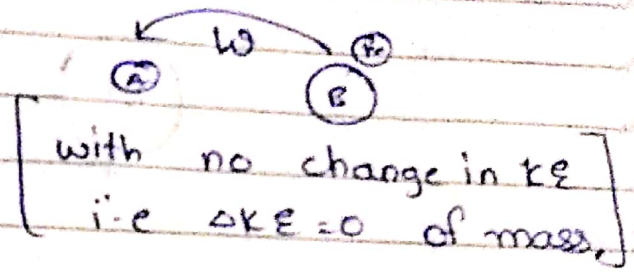 W
A
B
with no change in KE
i.e ΔKE = 0 of mass,